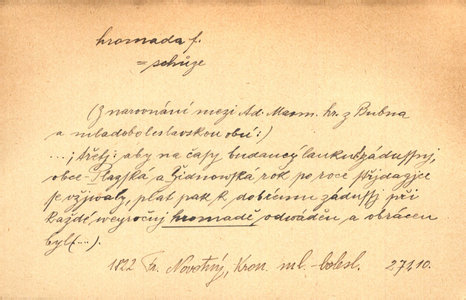 hromada f.
= schůze
(Z narovnání mezi Ad. Maxm. hr. z Bubna
a mladoboleslavskou obcí:)
...; třetj: aby na časy budaucý lauku zádussnj,
obce Plazská a Židnowská rok po roce střjdagjce
se vžjwaly, plat pak k dobrému zádussj při
každé weyročnj hromadě, odwáděn a obrácen
byl (...).
1822 Fr. Novotný, Kron. ml.-bolesl. 271,10.